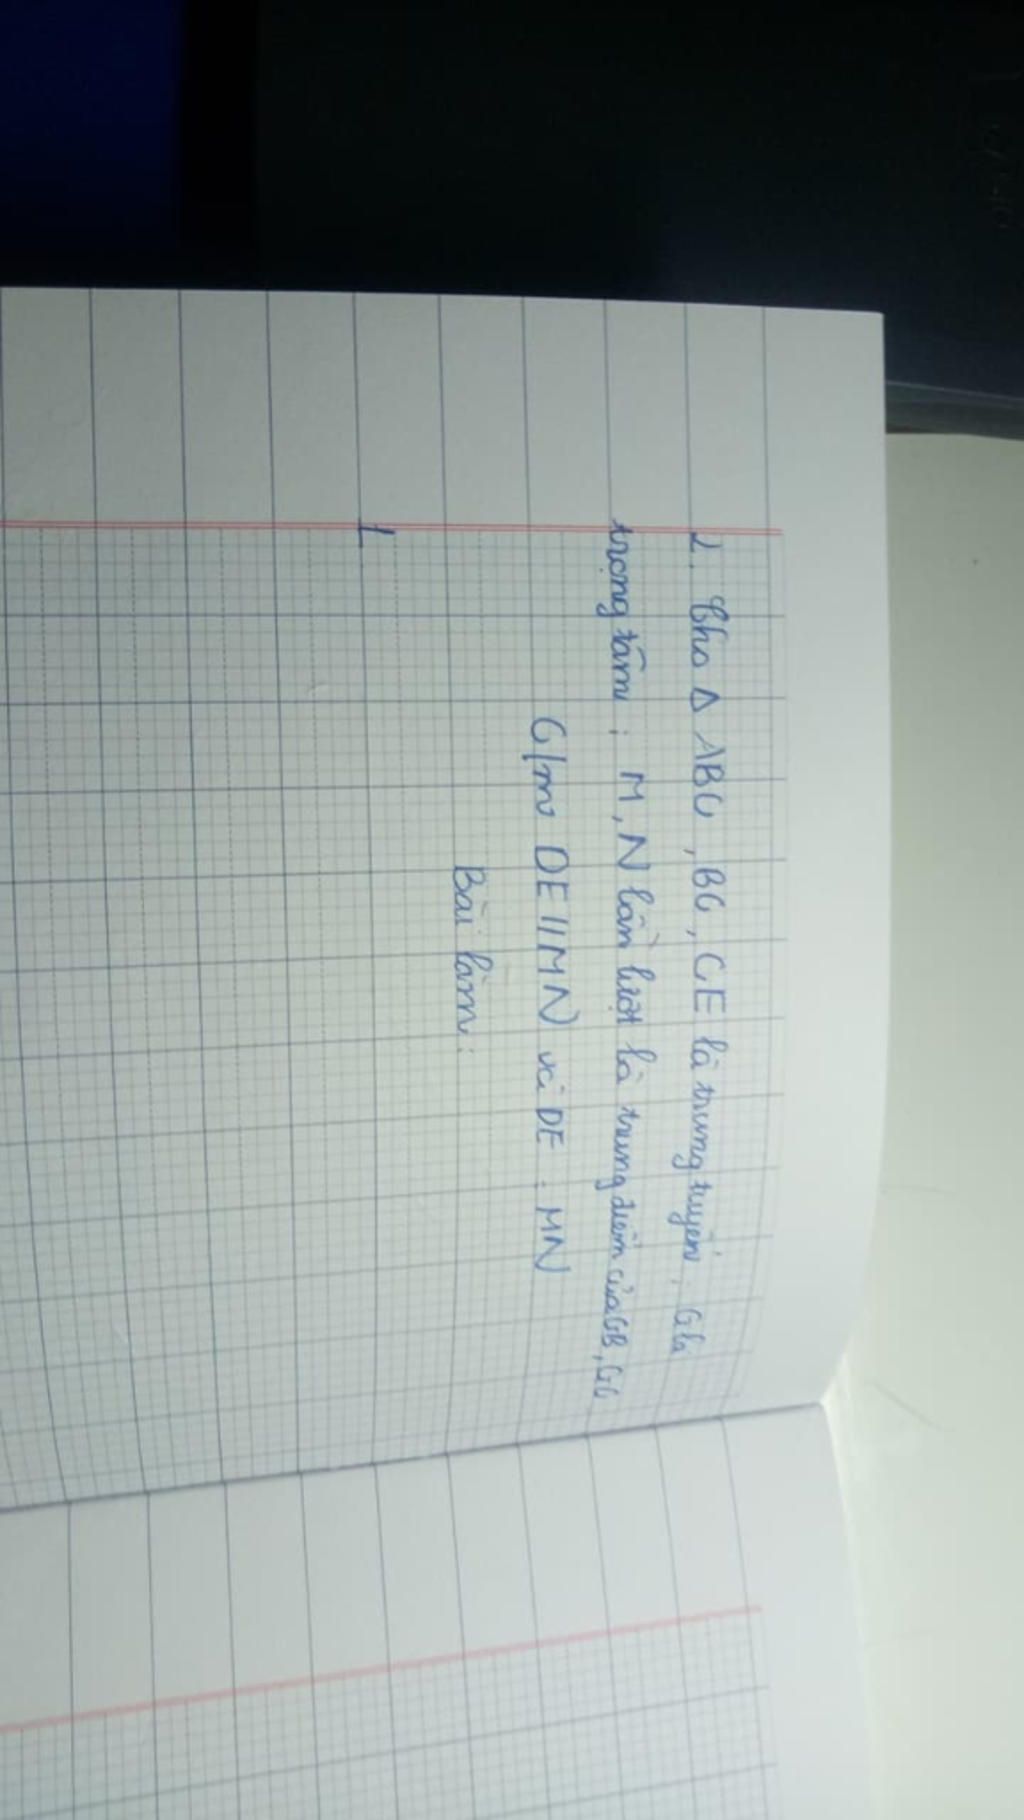 2. Cho Δ ABC, BG, CE là trung tuyến, G là
trọng tâm; M, N lần lượt là trung điểm của GB, GC
C/m DE // MN và DE = MN
Bài làm:
1